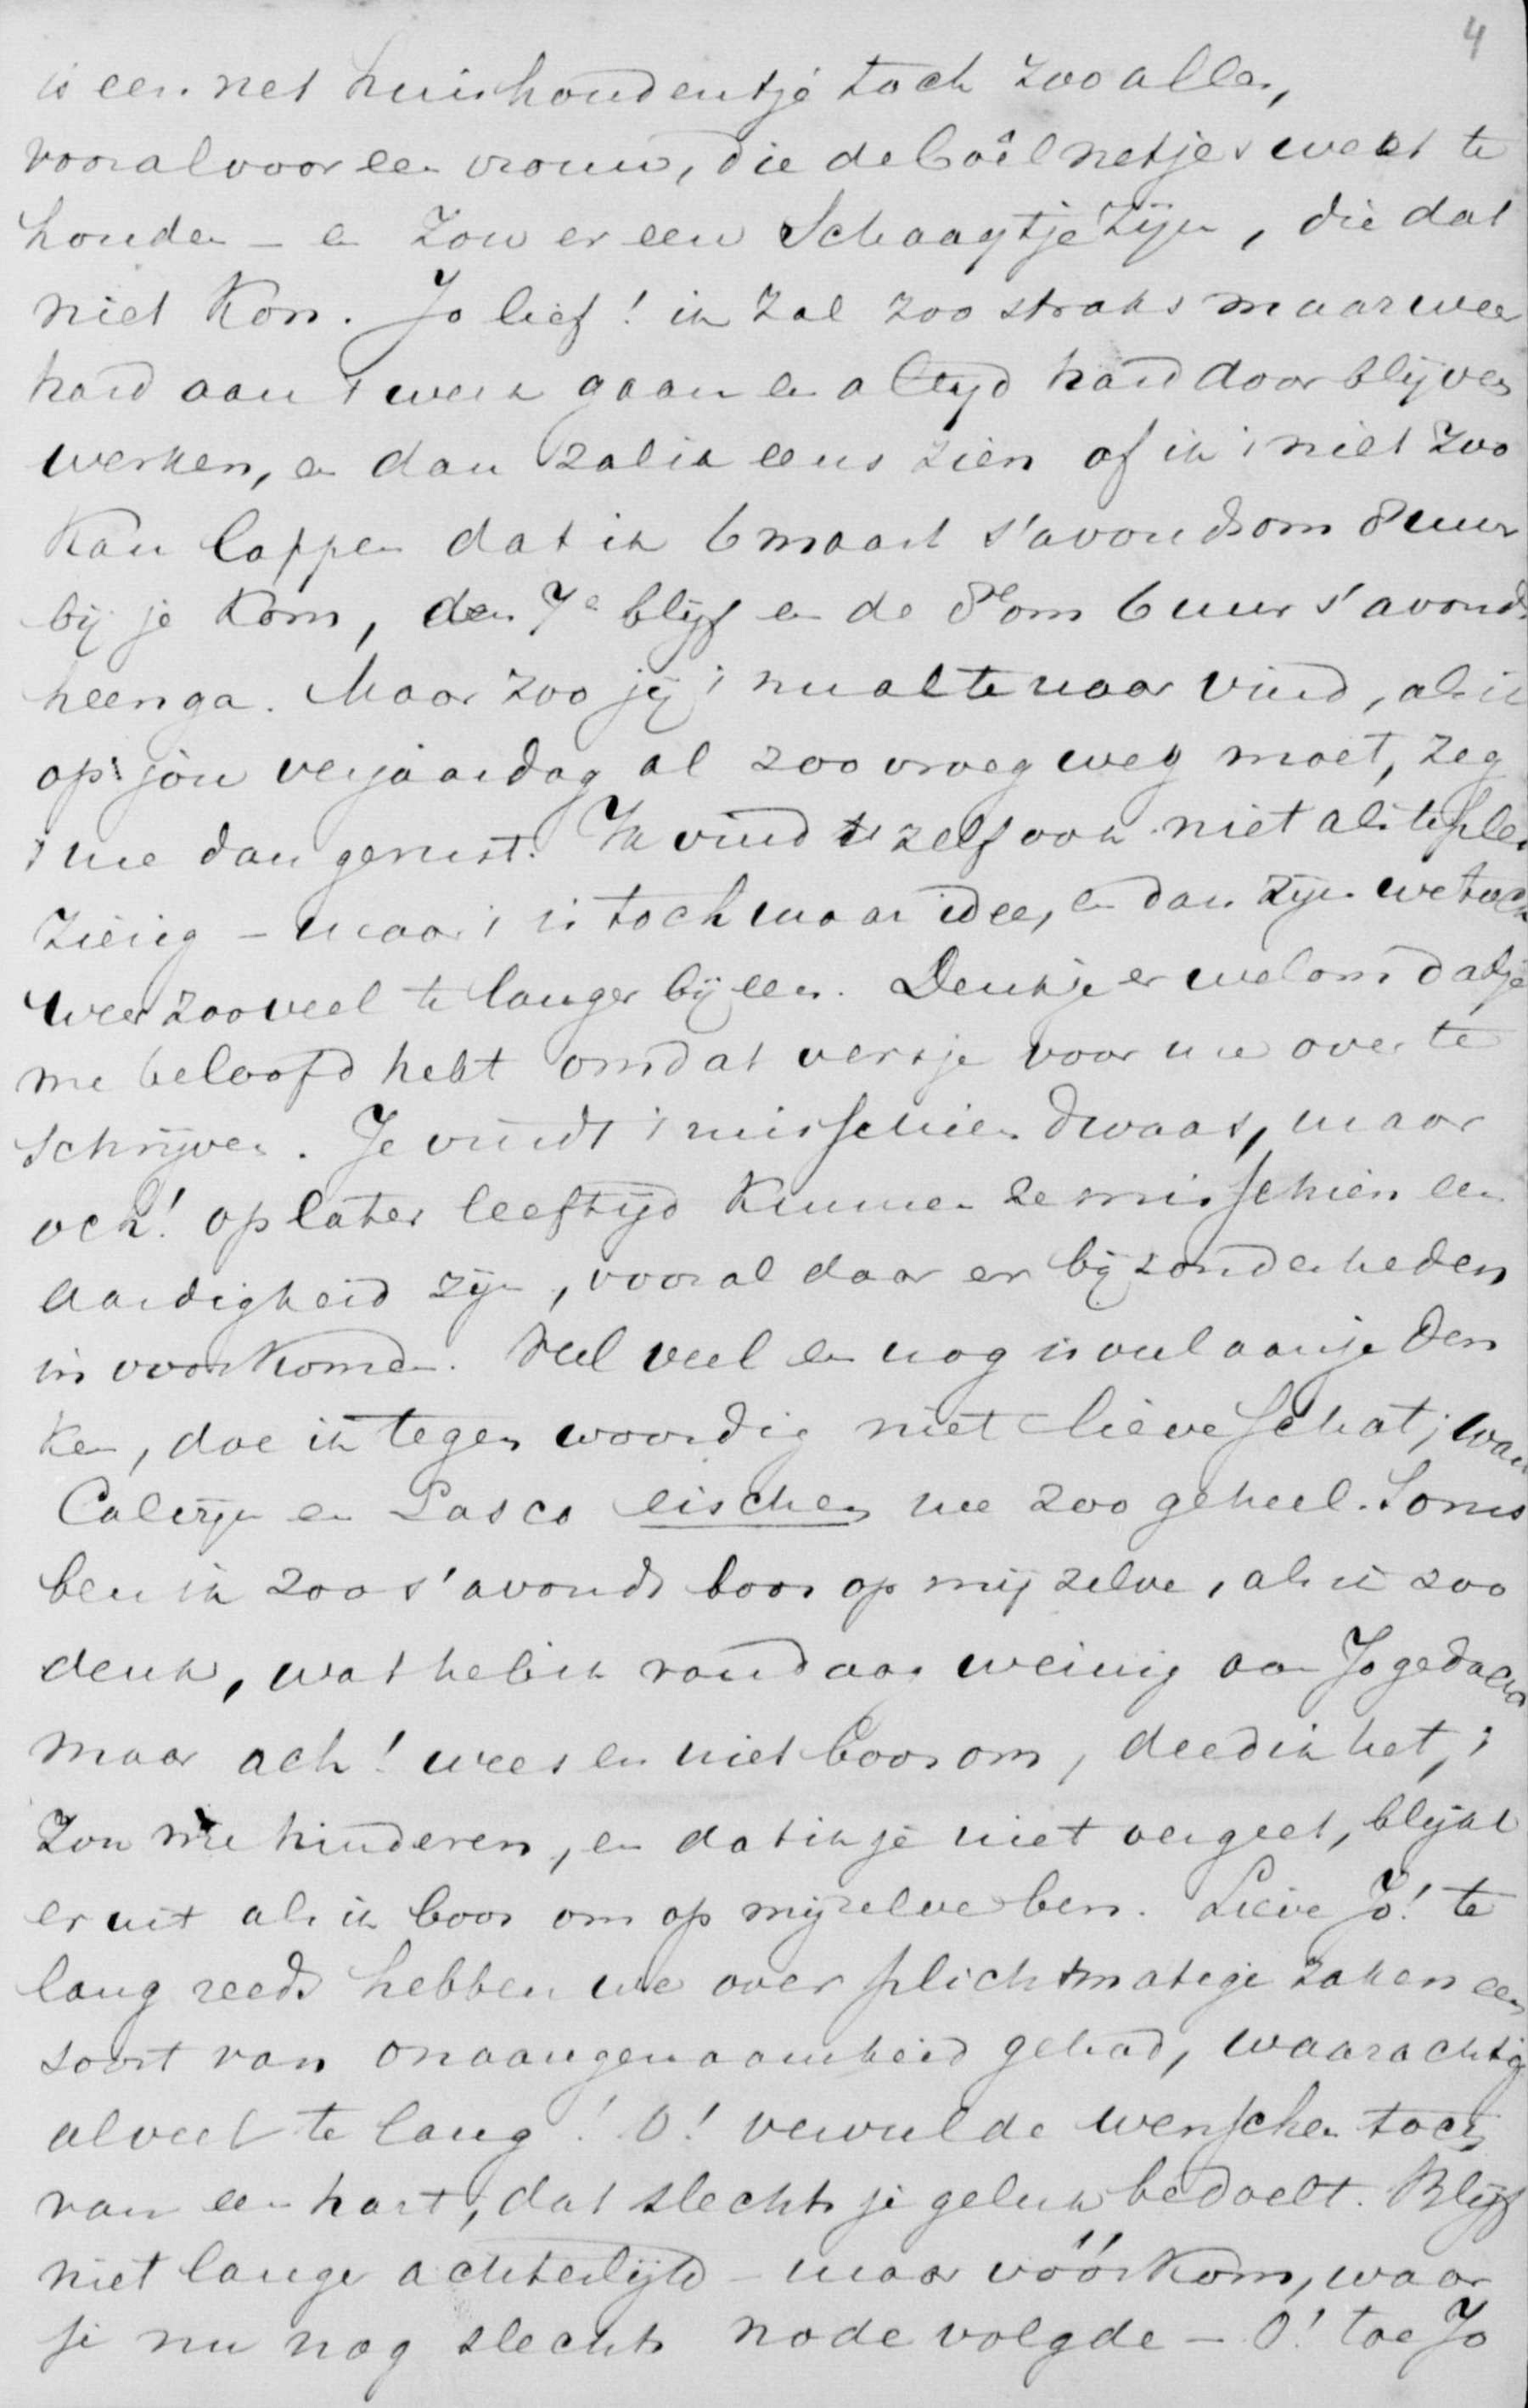 4
is een net huishoudentje toch zoo alles,
vooral voor een vrouw, die de boêl netjes weet te
houden – en zou er een Schaagtje zijn, die dat
niet kon. Jo lief! ik zal zoo straks maar weer
hard aan 't werk gaan en altijd hard door blijven
werken, en dan zal ik eens zien of ik 't niet zoo
kan lappen dat ik 6 maart s'avonds om 8 uur
bij je kom, den 7e blijf en de 8e om 6 uur s'avonds
heenga. Maar zoo jij 't nu al te naar vind, als ik
op jou verjaardag al zoo vroeg weg moet, zeg
't me dan gerust. Ik vind 't zelf ook niet al te ple
zierig – maar 't is toch maar idee, en dan zijn we toch
weer zooveel te langer bijeen. Denk je er wel om dat je
me beloofd hebt om dat versje voor me over te
schrijven. Je vindt 't misschien dwaas, maar
och! op later leeftijd kunnen ze misschien een
aardigheid zijn, vooral daar er bijzonderheden
in voorkomen. Veel veel en nog is veel aan je den
ken, doe ik tegenwoordig niet lieve schat; want
Calcijn en Pasca eischen me zoo geheel. Soms
ben ik zoo s'avonds boos op mij zelve, als ik zoo
denk, wat heb ik vandaag weinig aan Jo gedacht
maar ach! wees er niet boos om, deed ik het, 't
zou me hinderen, en dat ik je niet vergeet, blijkt
er uit als ik boos om op mijzelve ben. Lieve Jo! te
lang reeds hebben we over plichtmatige zaken een
soort van onaangenaamheid gehad, waarachtig
al veel te lang! O! vervul de wenschen toch
van een hart, dat slechts je geluk bedoelt. Blijf
niet langer achterlijk – maar vóórkom, waar
je nu nog slechts node volgde – O! toe Jo